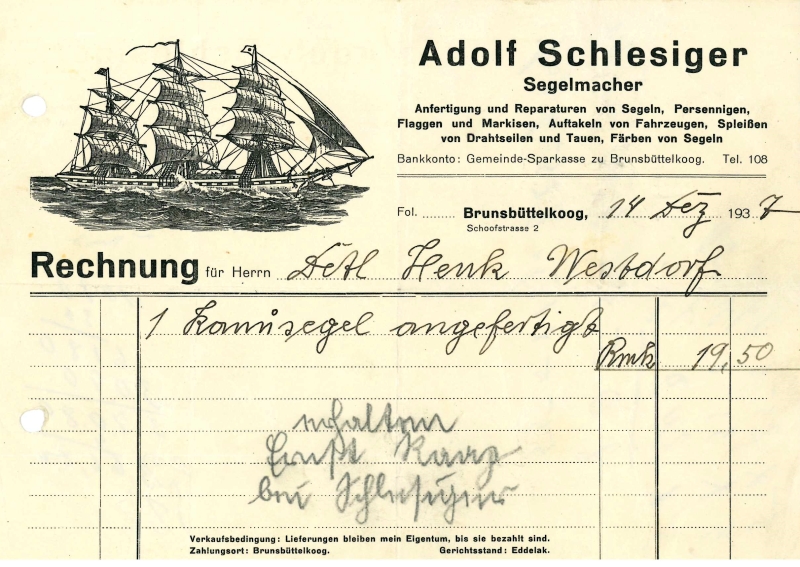 Adolf Schlesiger
Segelmacher
Anfertigung und Reparaturen von Segeln, Persennigen,
Flaggen und Markisen, Auftakeln von Fahrzeugen, Spleißen
von Drahtseilen und Tauen, Färben von Segeln
Bankkonto: Gemeinde-Sparkasse zu Brunsbüttelkoog. Tel. 108
Fol. ........ Brunsbüttelkoog, 14 Dez 1937
Schoofstrasse 2
Rechnung für Herrn Detl Henk Westdorf
1 Kanusegel angefertigt
Rmk 19,50
erhalten
Ernst
bei Schlesiger
Verkaufsbedingung: Lieferungen bleiben mein Eigentum, bis sie bezahlt sind.
Zahlungsort: Brunsbüttelkoog. Gerichtsstand: Eddelak.